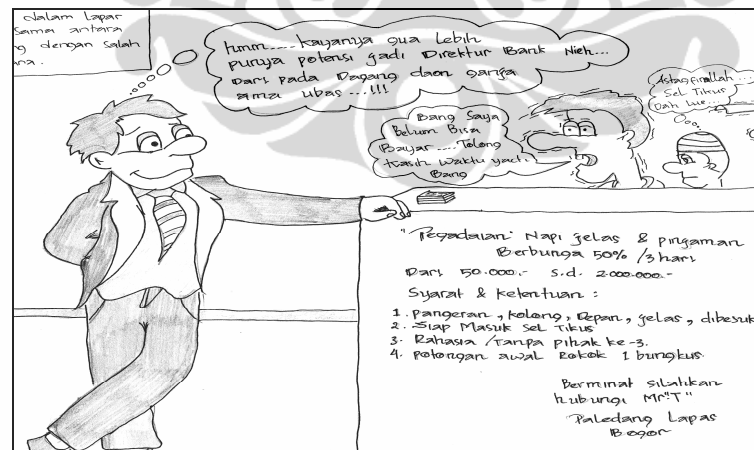 dalam lapar
sama antara
g dengan salah
na.
hmm.... kayanya gua lebih
punya potensi jadi Direktur Bank Nieh...
Dari pada Dagang daon ganja
ama ubas ...!!!
Astagfirallah...
Sel Tikus
Dah lue...
Bang Saya
Belum Bisa
Bayar .... Tolong
Kasih waktu yach.
Bang
"Pegadaian: Napi jelas & pinjaman
Berbunga 50% /3 hari
Dari 50.000.- s.d. 2.000.000.-
Syarat & Ketentuan :
1. pangeran, kolong, Depan, jelas, dibesuk
2. Siap Masuk Sel Tikus
3. Rahasia /Tanpa pihak ke-3.
4. potongan awal Rokok 1 bungkus.
Berminat silahkan
hubungi Mr"T"
"Paledang Lapas
Bogor